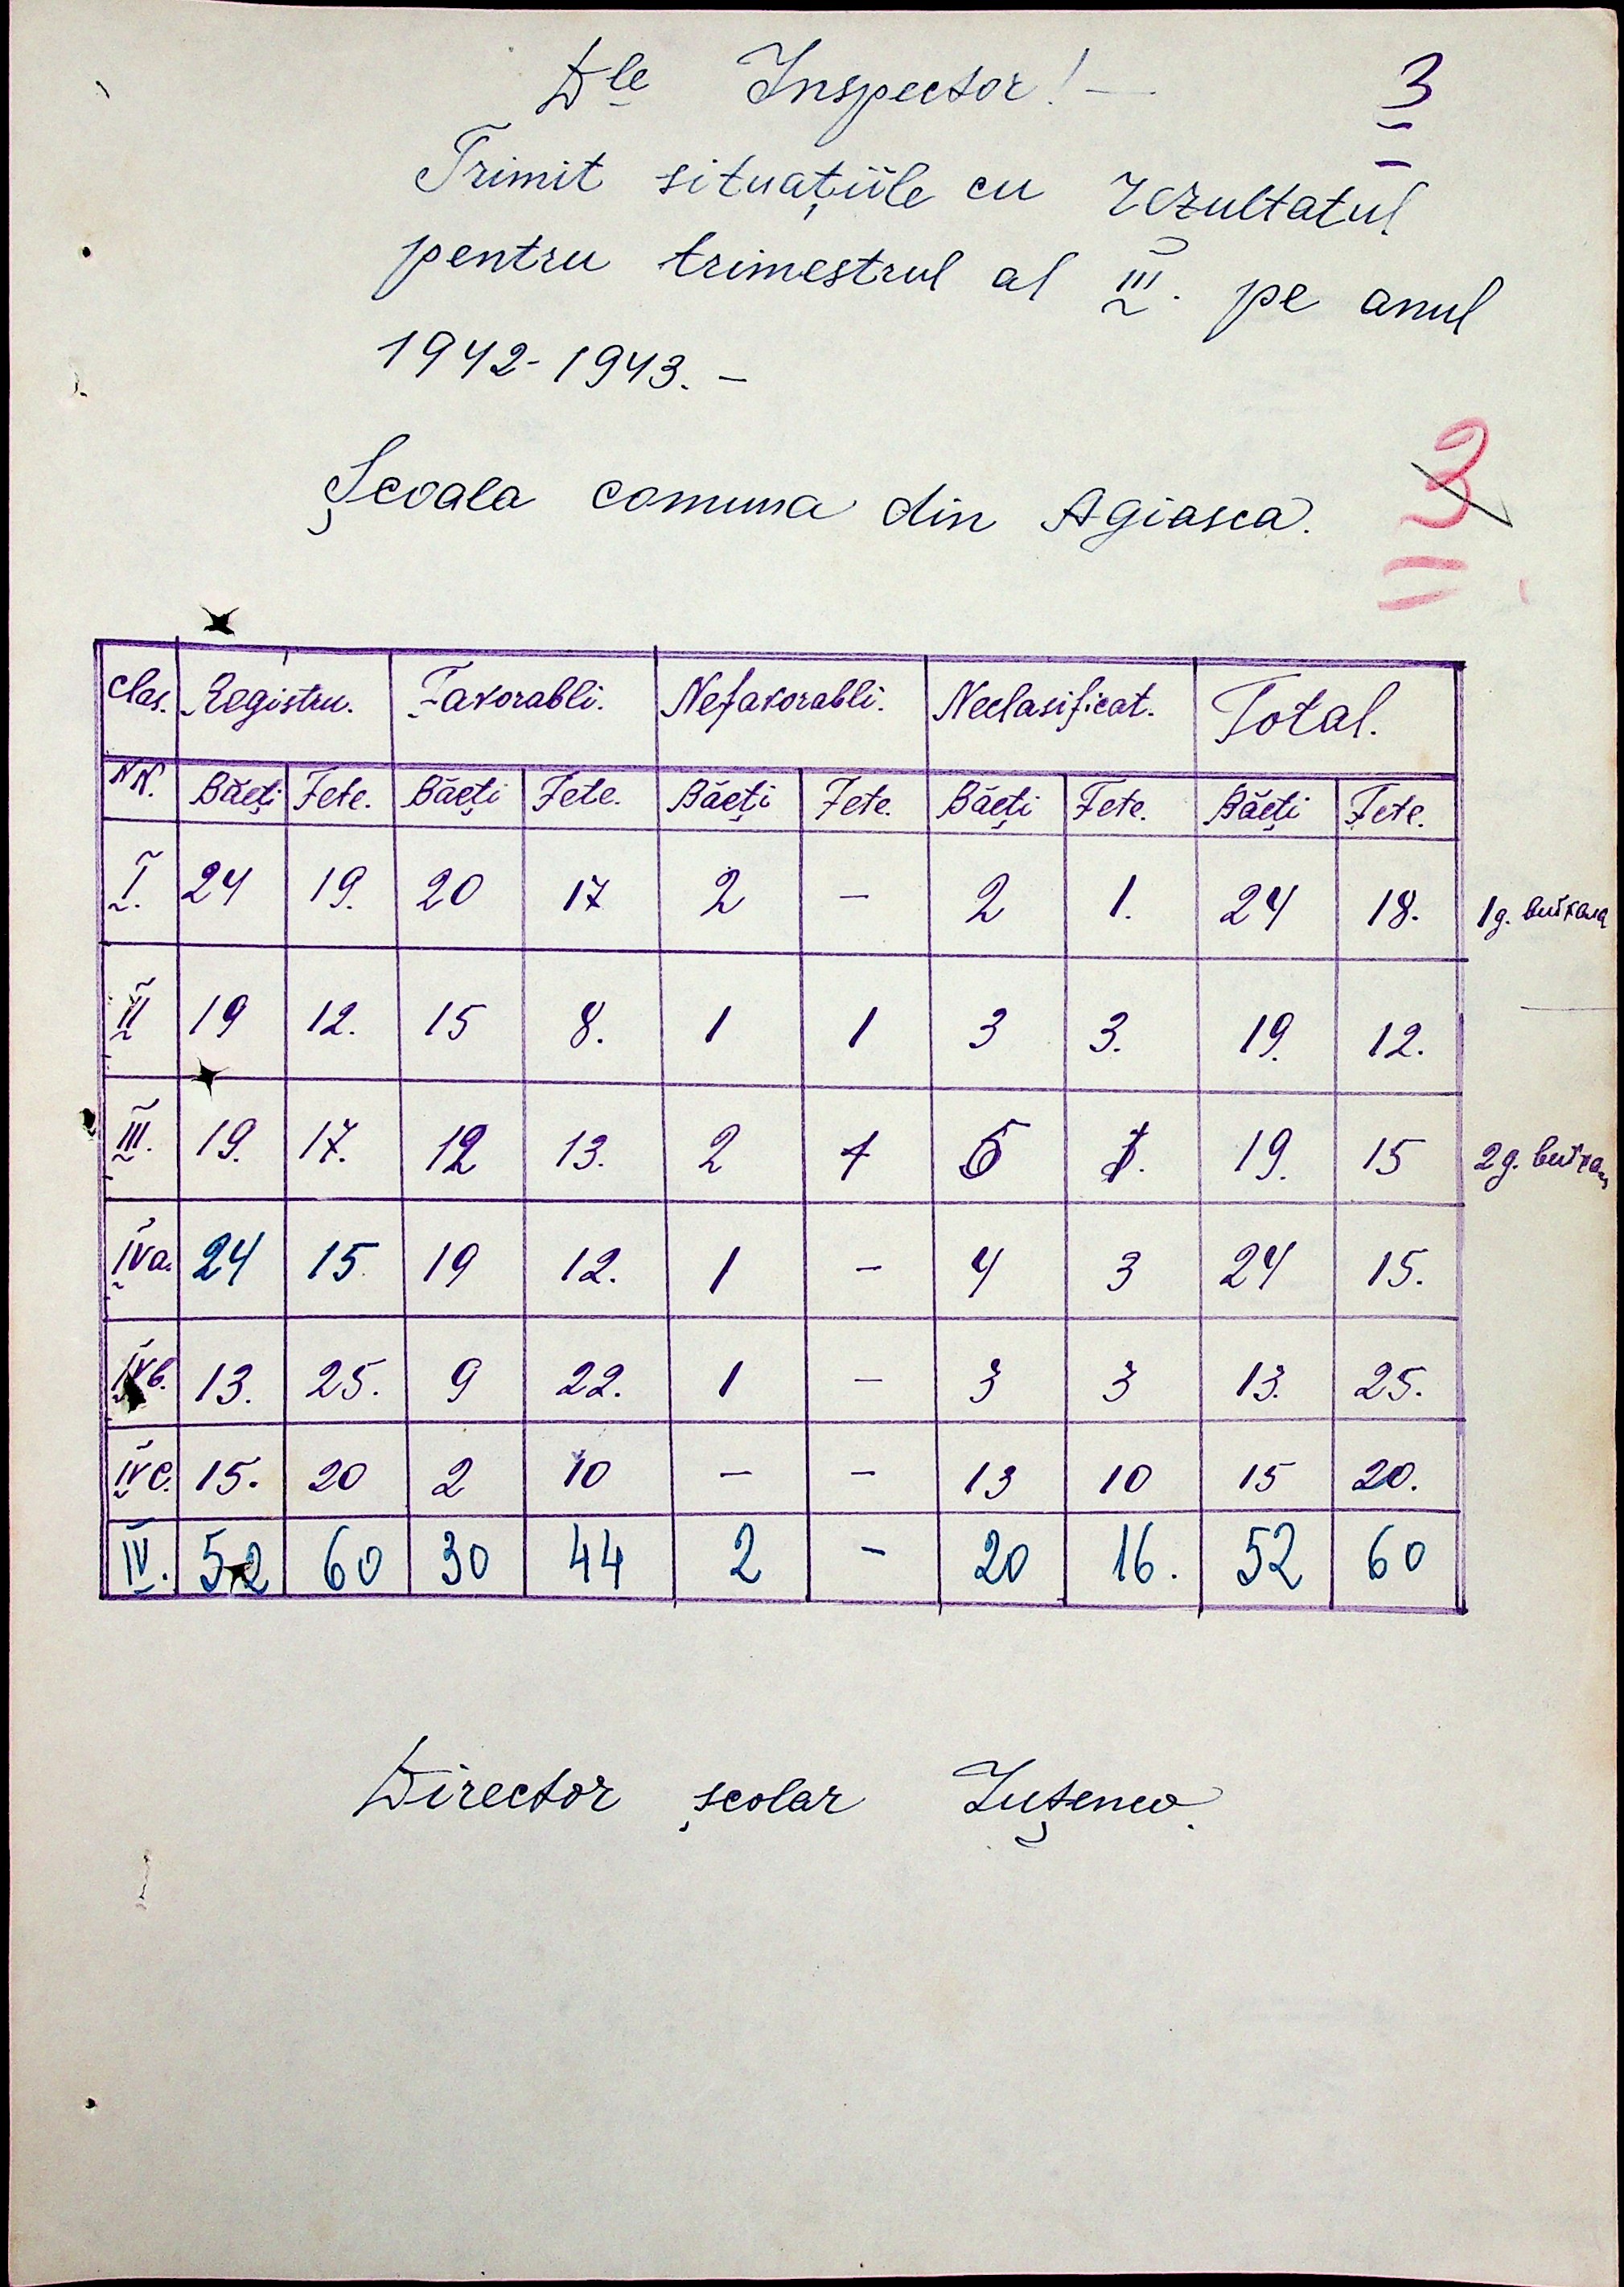 Dle Inspector! — 3
Trimit situațiile cu rezultatul
pentru trimestrul al III. pe anul
1942-1943. –
Școala comuna din Agiasca. 3
Clas. Registru. Favorabli. Nefavorabli. Neclasificat. Total.
NN. Băeți Fete. Băeți Fete. Băeți Fete. Băeți Fete. Băeți Fete.
I. 24 19. 20 17 2 — 2 1. 24 18. 1g.
II 19 12. 15 8. 1 1 3 3. 19. 12.
III. 19. 17. 12 13. 2 1 5 1. 19. 15 2g.
IVa. 24 15. 19 12. 1 – 4 3 24 15.
IVb. 13. 25. 9 22. 1 — 3 3 13. 25.
IVc. 15. 20 2 10 — — 13 10 15 20.
IV. 52 60 30 44 2 – 20 16. 52 60
Director școlar